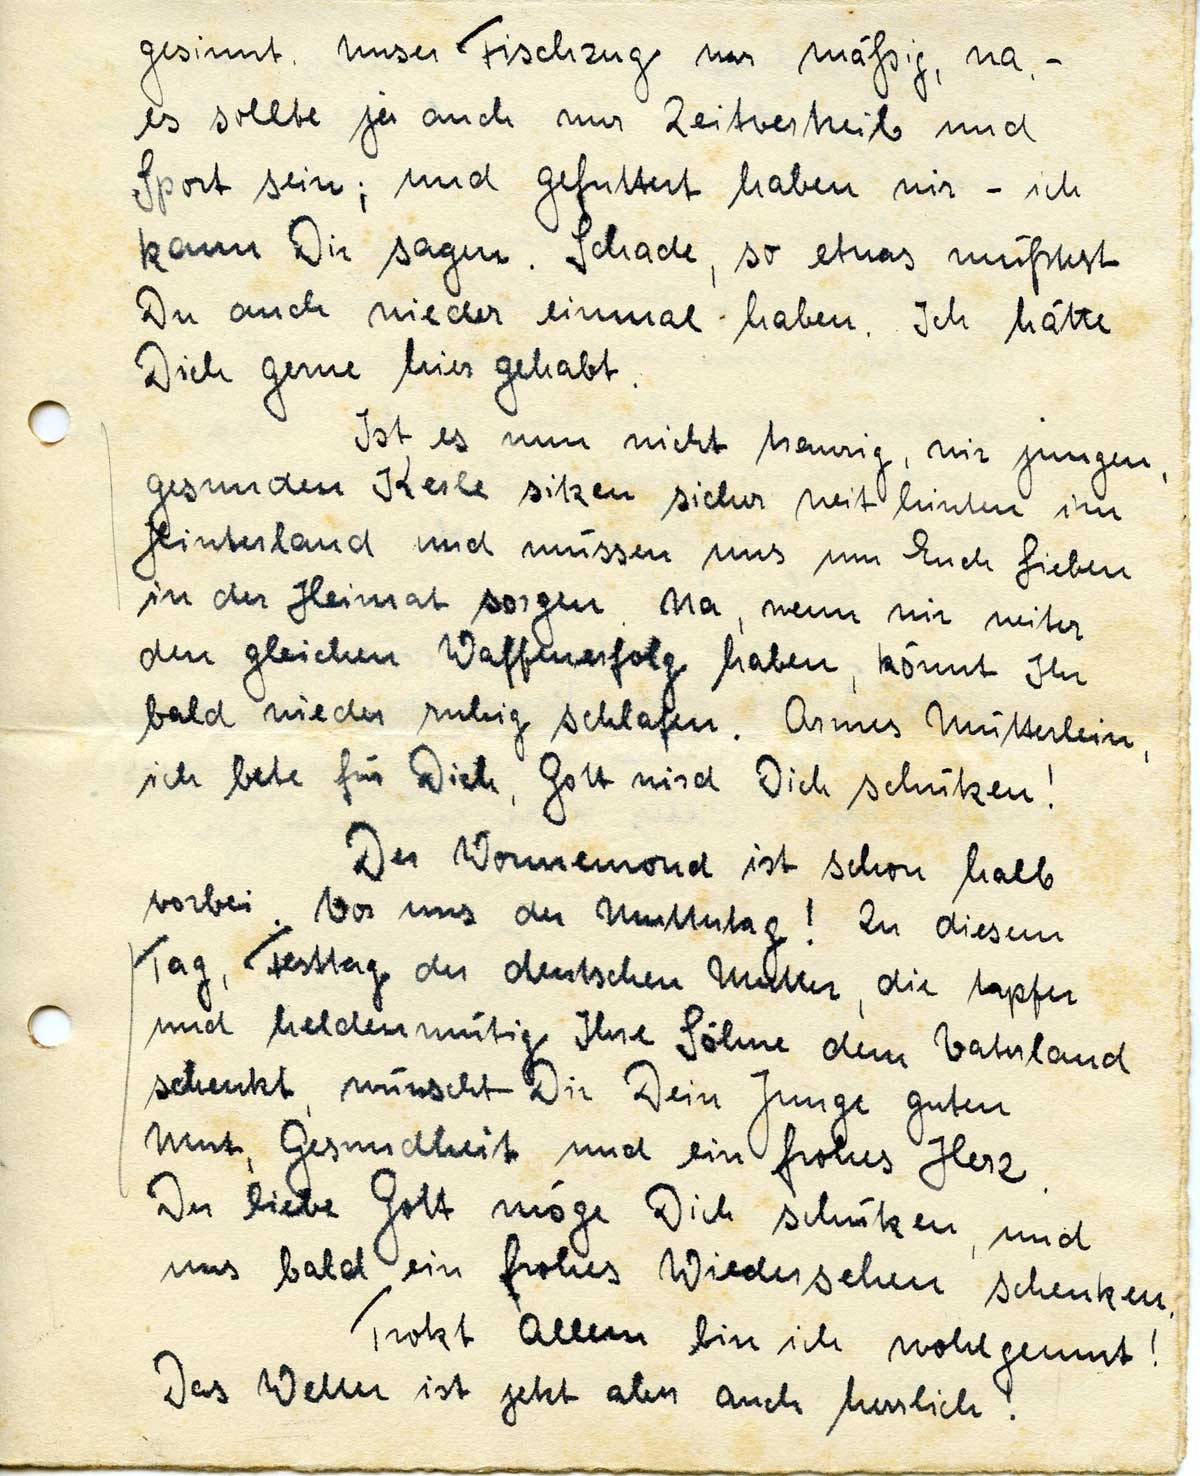 gesinnt. Unser Fischzug war mäßig, na, -
es sollte ja auch nur Zeitvertreib und
Sport sein; und gefuttert haben wir - ich
kann Dir sagen. Schade, so etwas müßtest
Du auch wieder einmal haben. Ich hätte
Dich gerne hier gehabt.
Ist es nun nicht traurig, wir jungen,
gesunden Kerle sitzen sicher weit hinten im
Hinterland und müssen uns um Euch Lieben
in der Heimat sorgen. Na, wenn wir weiter
den gleichen Waffenerfolg haben, könnt Ihr
bald wieder ruhig schlafen. Armes Mütterlein,
ich bete für Dich, Gott wird Dich schützen!
Der Wonnemond ist schon halb
vorbei. Vor uns der Muttertag! Zu diesem
Tag, Festtag der deutschen Mutter, die tapfer
und heldenmütig Ihre Söhne dem Vaterland
schenkt, wünscht Dir Dein Junge guten
Mut, Gesundheit und ein frohes Herz.
Der liebe Gott möge Dich schützen, und
uns bald ein frohes Wiedersehen schenken.
Trotzt Allem bin ich wohlgemut!
Das Wetter ist jetzt aber auch herrlich!